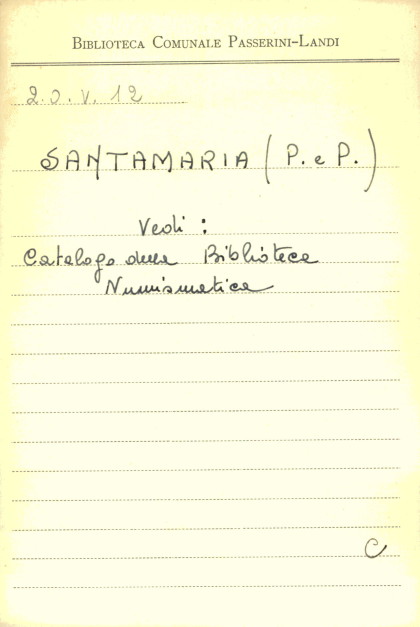 BIBLIOTECA COMUNALE PASSERINI-LANDI
2.O.V.12
SANTAMARIA (P. e P.)
Vedi:
Catalogo della Biblioteca
Numismatica
C